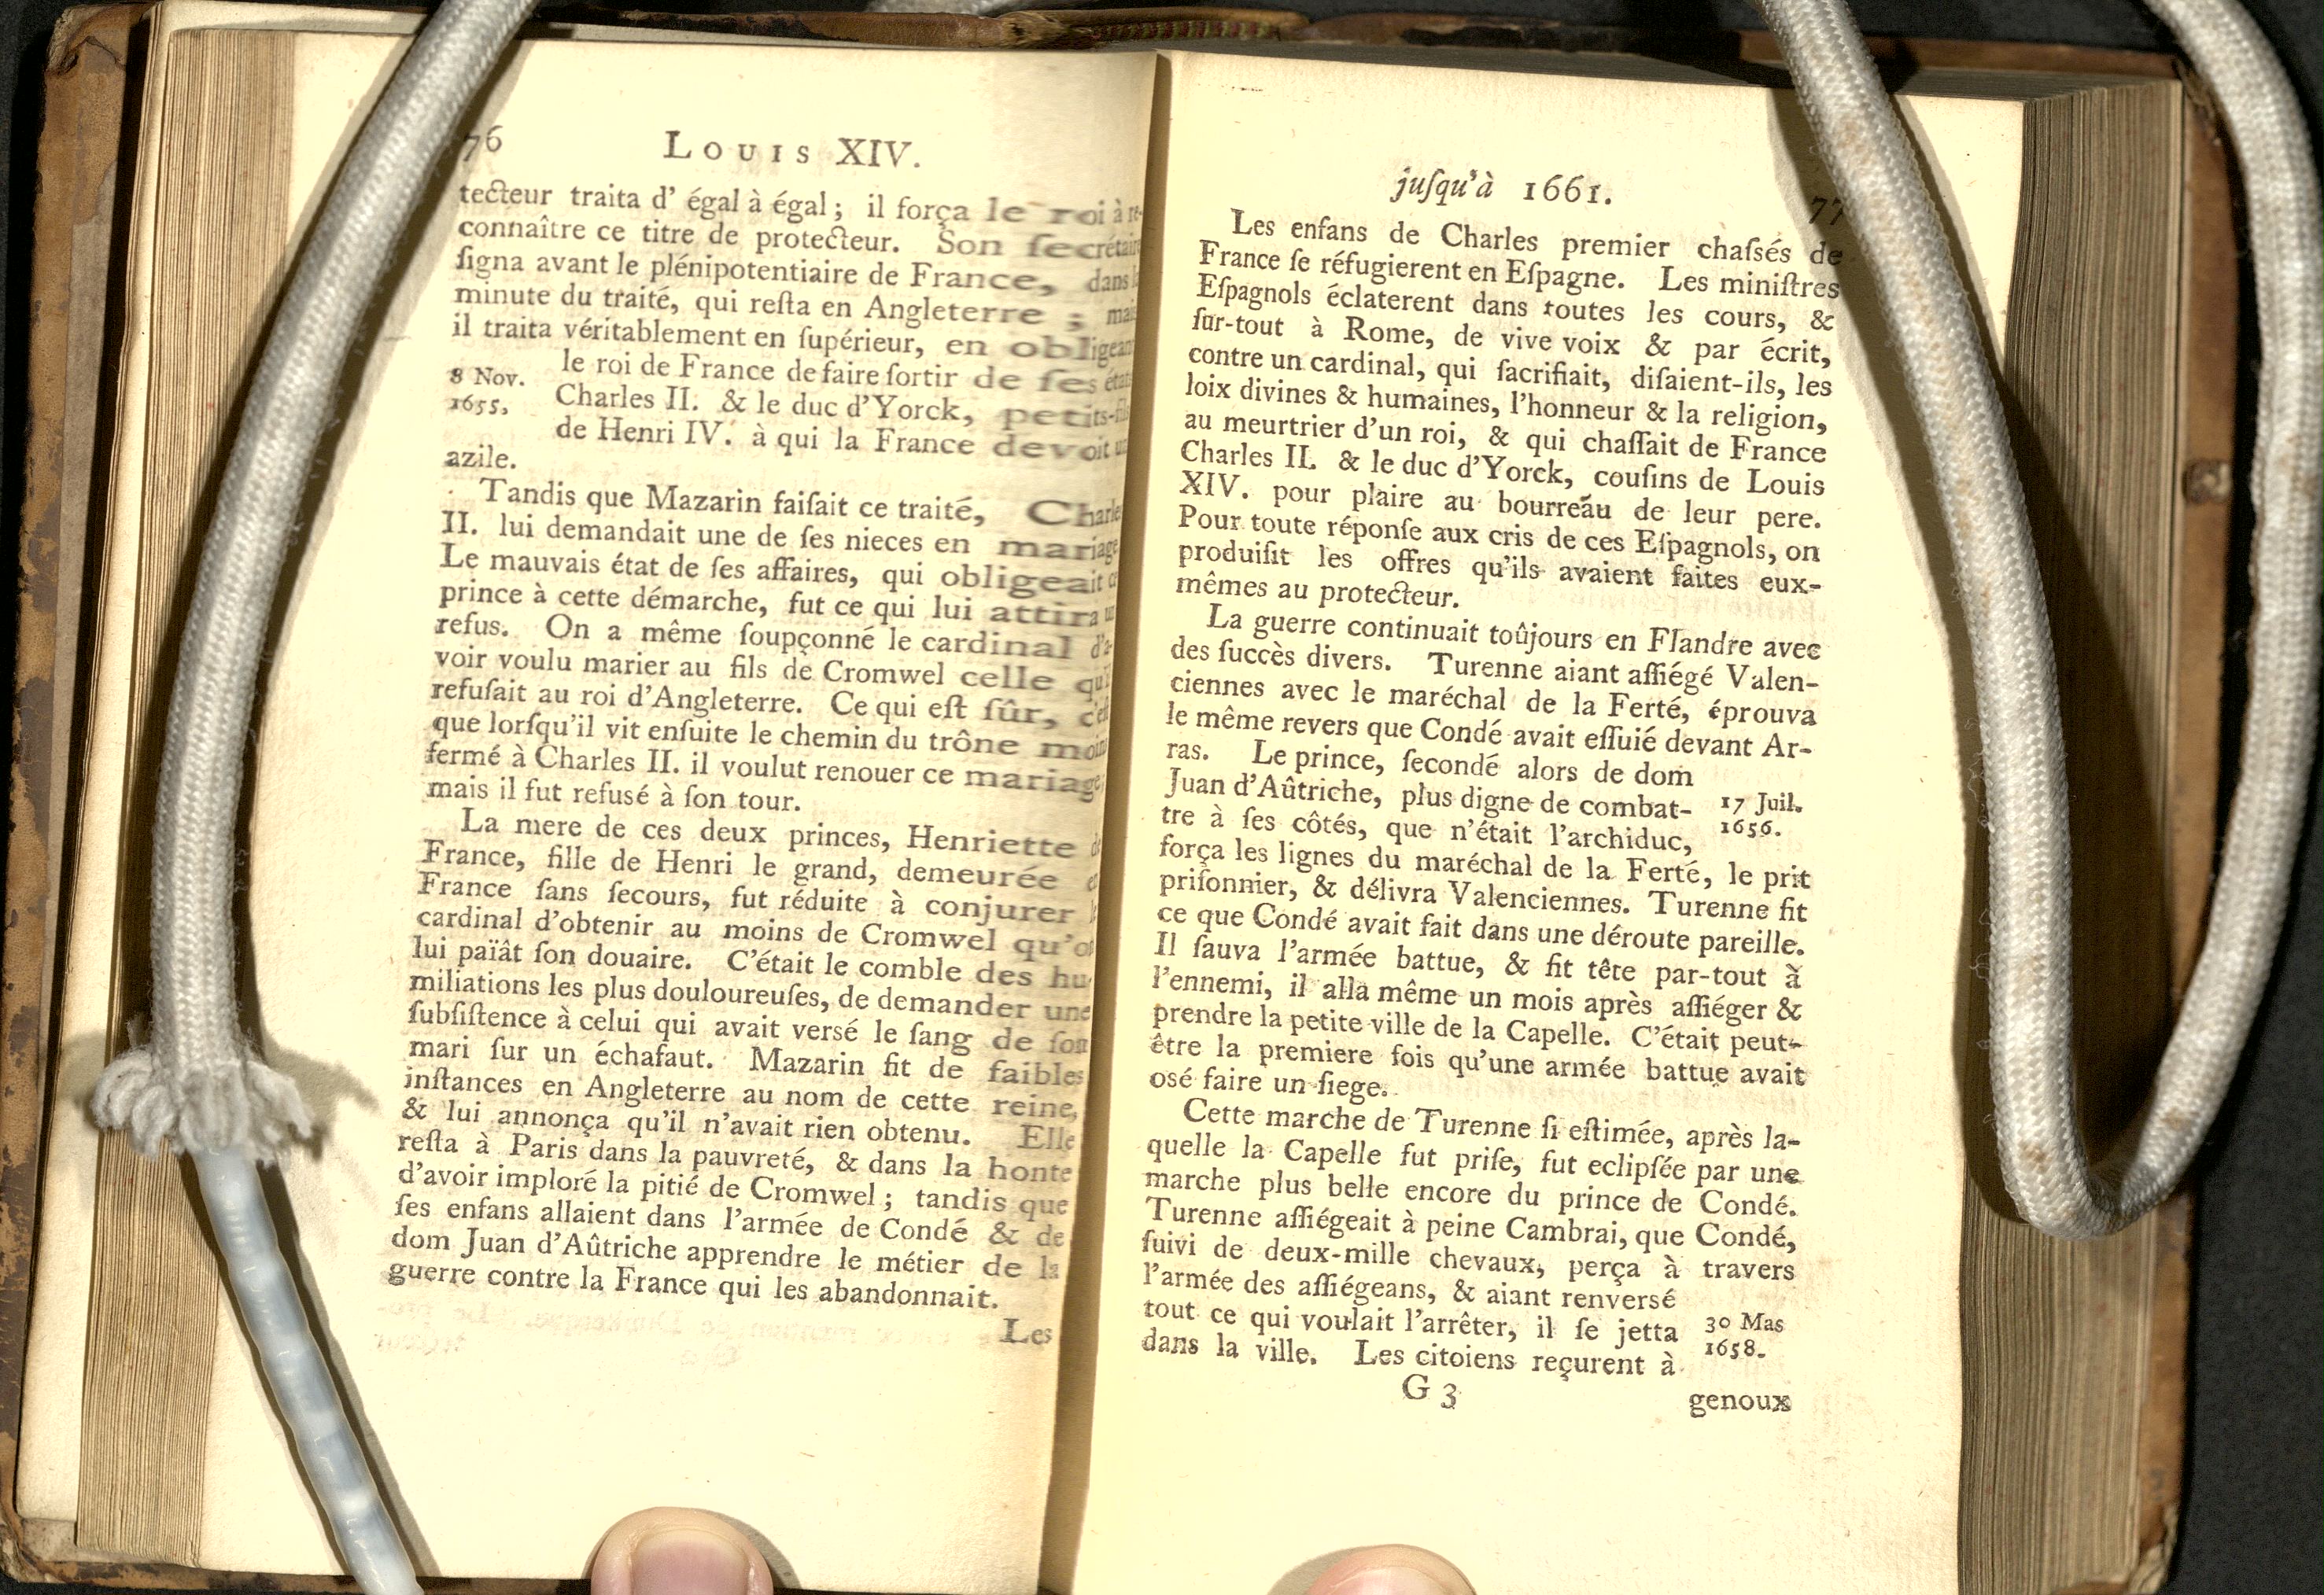 76 LOUIS XIV.
tecteur traita d' égal à égal; il força le roi à re-
connaître ce titre de protecteur. Son ſecrétaire
ſigna avant le plénipotentiaire de France, dans
minute du traité, qui reſta en Angleterre; mais
il traita véritablement en ſupérieur, en obligeant
le roi de France de faire ſortir de ſes états
8 Nov.
1655.
Charles II. & le duc d'Yorck, petits-fils
de Henri IV. à qui la France devoit un
azile.
Tandis que Mazarin faiſait ce traité, Charles
II. lui demandait une de ſes nieces en mariage
Le mauvais état de ſes affaires, qui obligeait ce
prince à cette démarche, fut ce qui lui attira un
refus. On a même ſoupçonné le cardinal d'a-
voir voulu marier au fils de Cromwel celle qu'il
refuſait au roi d'Angleterre. Ce qui eſt ſûr, c'eſt
que lorſqu'il vit enſuite le chemin du trône moins
fermé à Charles II. il voulut renouer ce mariage;
mais il fut refusé à ſon tour.
La mere de ces deux princes, Henriette de
France, fille de Henri le grand, demeurée en
France ſans ſecours, fut réduite à conjurer le
cardinal d'obtenir au moins de Cromwel qu'on
lui païât ſon douaire. C'était le comble des hu-
miliations les plus douloureuſes, de demander une
ſubſiſtence à celui qui avait versé le ſang de ſon
mari ſur un échafaut. Mazarin fit de faibles
inſtances en Angleterre au nom de cette reine,
& lui annonça qu'il n'avait rien obtenu. Elle
reſta à Paris dans la pauvreté, & dans la honte
d'avoir imploré la pitié de Cromwel; tandis que
ſes enfans allaient dans l'armée de Condé & de
dom Juan d'Aûtriche apprendre le métier de la
guerre contre la France qui les abandonnait.
Les
juſqu'à 1661. 77
Les enfans de Charles premier chaſsés de
France ſe réfugierent en Eſpagne. Les miniſtres
Eſpagnols éclaterent dans toutes les cours, &
ſur-tout à Rome, de vive voix & par écrit,
contre un cardinal, qui ſacrifiait, diſaient-ils, les
loix divines & humaines, l'honneur & la religion,
au meurtrier d'un roi, & qui chaſſait de France
Charles II. & le duc d'Yorck, couſins de Louis
XIV. pour plaire au bourreau de leur pere.
Pour toute réponſe aux cris de ces Eſpagnols, on
produiſit les offres qu'ils avaient faites eux-
mêmes au protecteur.
La guerre continuait toûjours en Flandre avec
des ſuccès divers. Turenne aiant aſſiégé Valen-
ciennes avec le maréchal de la Ferté, éprouva
le même revers que Condé avait eſſuié devant Ar-
ras. Le prince, ſecondé alors de dom
Juan d'Aûtriche, plus digne de combat-
17 Juil.
1656.
tre à ſes côtés, que n'était l'archiduc,
força les lignes du maréchal de la Ferté, le prit
priſonnier, & délivra Valenciennes. Turenne fit
ce que Condé avait fait dans une déroute pareille.
Il ſauva l'armée battue, & fit tête par-tout à
l'ennemi, il alla même un mois après aſſiéger &
prendre la petite ville de la Capelle. C'était peut-
être la premiere fois qu'une armée battue avait
osé faire un ſiege.
Cette marche de Turenne ſi eſtimée, après la-
quelle la Capelle fut priſe, fut eclipſée par une
marche plus belle encore du prince de Condé.
Turenne aſſiégeait à peine Cambrai, que Condé,
ſuivi de deux-mille chevaux, perça à travers
l'armée des aſſiégeans, & aiant renversé
tout ce qui voulait l'arrêter, il ſe jetta
30 Mas
1658.
dans la ville. Les citoiens reçurent à
G 3 genoux